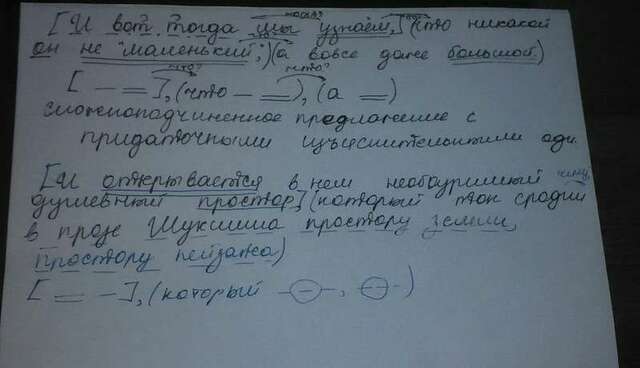 [И вот тогда мы узнаём,] (что никакой
он не "маленький",) (а вовсе даже большой)
что? что?
[ — = ], (что — = ), (а = )
сложноподчиненное предложение с
придаточными изъяснительными одн.
[И открывается в нем необозримый
душевный простор,] (который так сродни
в прозе Шукшина простору земли,
простору пейзажа)
[ = — ], (который